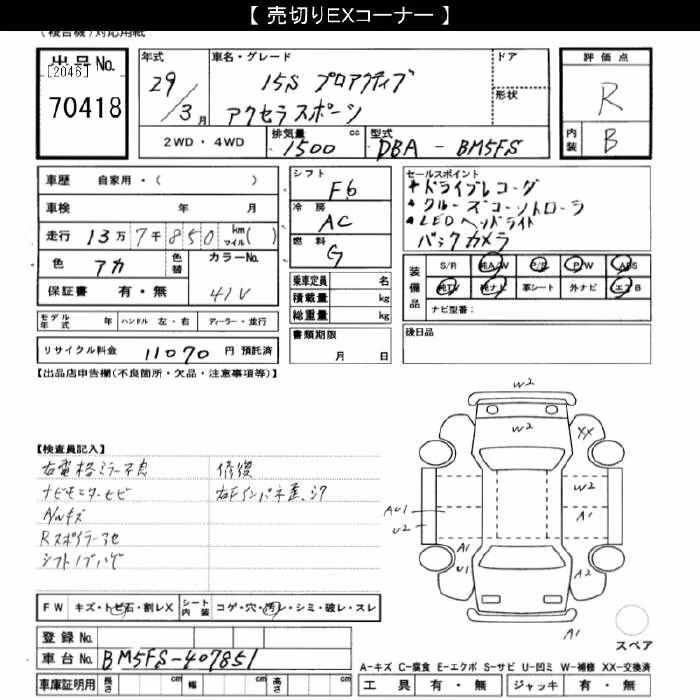 【 売切りEXコーナー 】
(複合機)対応用紙
出品No.
[2046]
70418
年式
29/3月
車名・グレード
15S プロアクティブ
アクセラスポーツ
ドア
形状
評価点
R
内装 B
2WD・4WD
排気量 1500 cc
型式 DBA - BM5FS
車歴 自家用・( )
車検 年 月
走行 13万7千850 km マイル( )
色 アカ 色替
カラーNo. 41V
保証書 有・無
シフト F6
冷房 AC
燃料 G
乗車定員 名
積載量 kg
総重量 kg
書類期限
月 日
セールスポイント
・ドライブレコーダ
・クルーズコントローラ
・LEDヘッドライト
バックカメラ
装備品
S/R 純A/W P/S P/W ABS
純TV 純ナビ 革シート 外ナビ エアB
ナビ型番:
後日品
モデル年式 年 ハンドル 左・右 ディーラー・並行
リサイクル料金 11070 円 預託済
【出品店申告欄(不良箇所・欠品・注意事項等)】
【検査員記入】
右電格ミラー不良
ナビモニターヒビ
A/Wキズ
Rスポイラーアセ
シフトノブハゲ
修復
右Fインパネ歪、シワ
W2
W2
XX
W2
A1
AU1
U2
A1
U1
A2
A1
スペア
FW キズ・トビ石・割レX
シート内装 コゲ・穴・汚レ・シミ・破レ・スレ
登録No.
車台No. BM5FS-407851
車庫証明用 長さ cm 幅 cm 高さ cm
A-キズ C-腐食 E-エクボ S-サビ U-凹ミ W-補修 XX-交換済
工具 有・無 ジャッキ 有・無